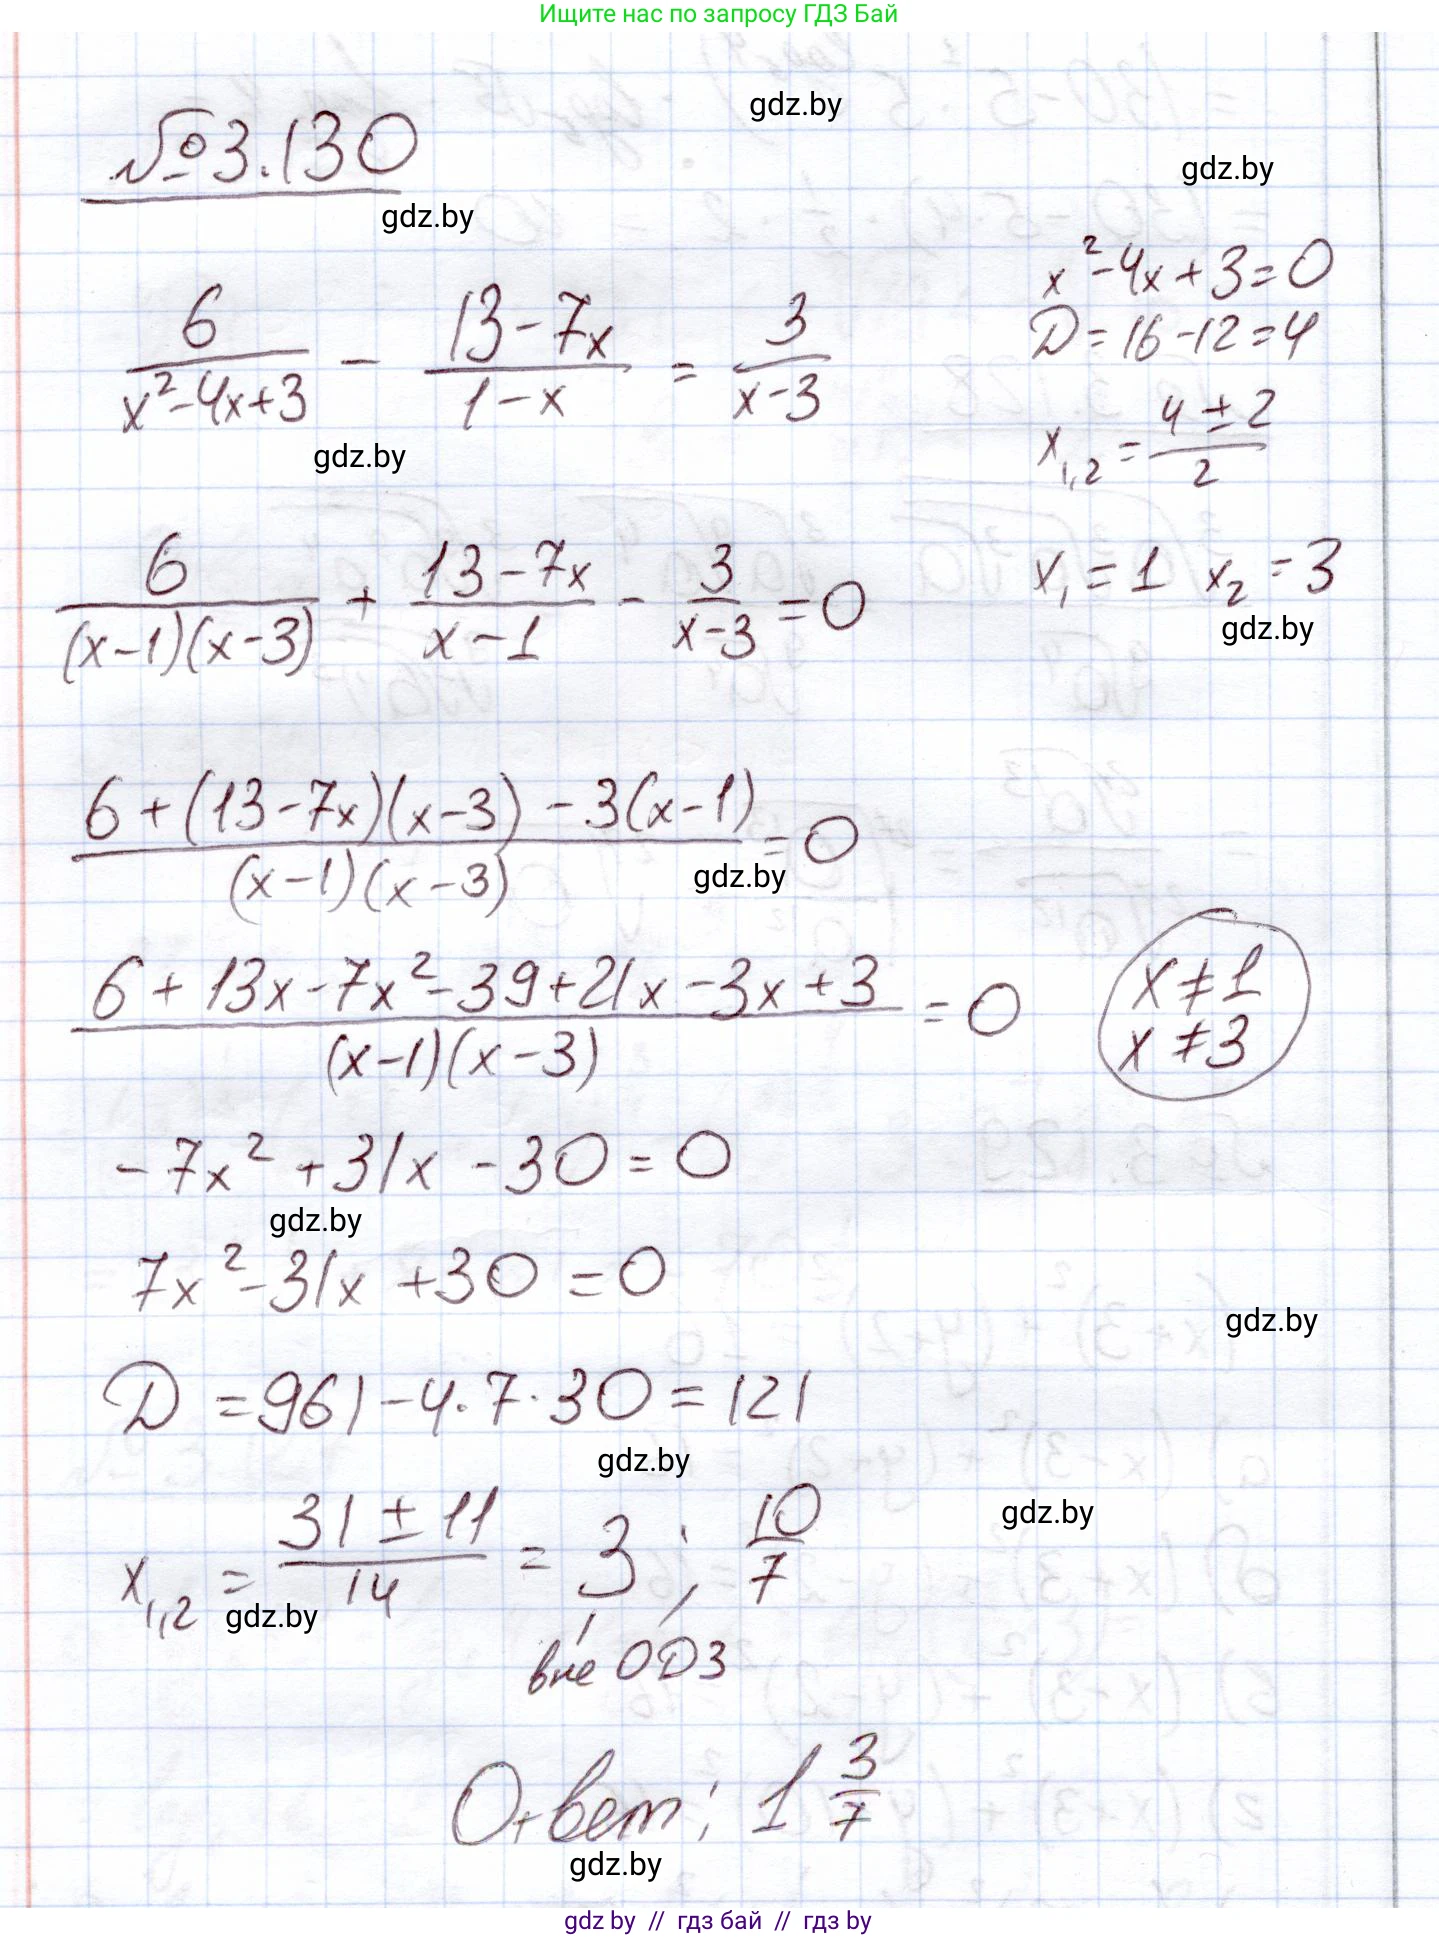 Ищите нас по запросу ГДЗ Бай
gdz.by
№3.130
gdz.by
gdz.by
6/(x²-4x+3) - (13-7x)/(1-x) = 3/(x-3)
gdz.by
x²-4x+3=0
D=16-12=4
x₁,₂ = (4±2)/2
x₁=1 x₂=3
gdz.by
6/((x-1)(x-3)) + (13-7x)/(x-1) - 3/(x-3) = 0
(6+(13-7x)(x-3)-3(x-1))/((x-1)(x-3)) = 0
gdz.by
(6+13x-7x²-39+21x-3x+3)/((x-1)(x-3)) = 0
x≠1
x≠3
-7x²+31x-30=0
gdz.by
7x²-31x+30=0
gdz.by
D=961-4·7·30=121
gdz.by
gdz.by
x₁,₂ = (31±11)/14 = 3; 10/7
gdz.by
вне ОДЗ
Ответ: 1 3/7
gdz.by
gdz by // гдз бай // гдз by